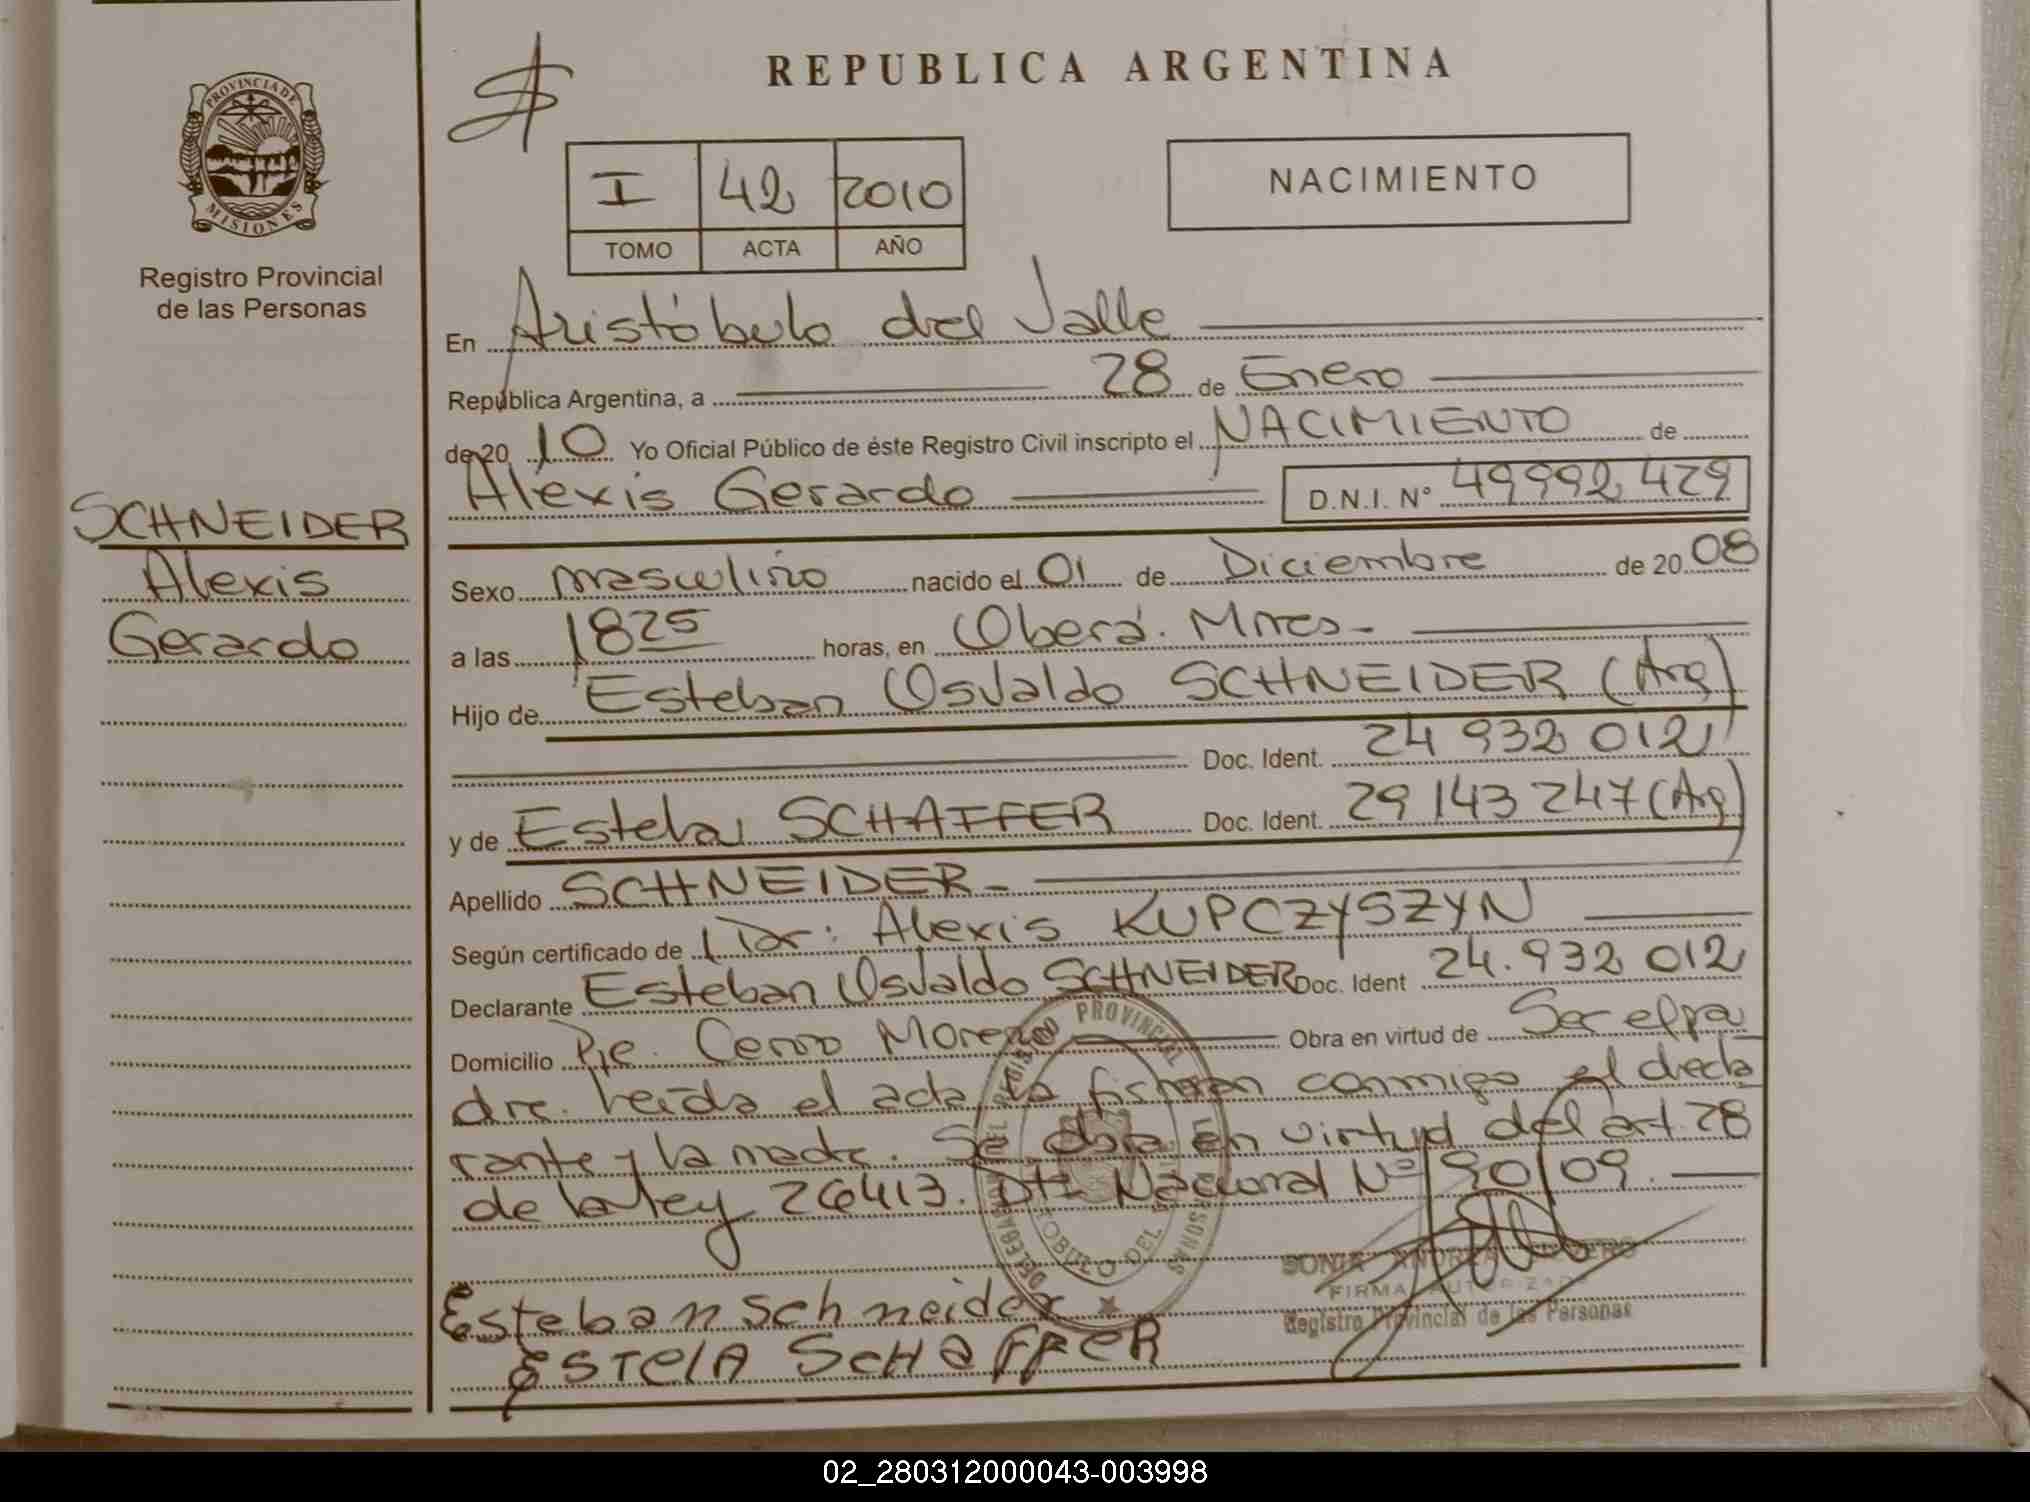 REPUBLICA ARGENTINA
PROVINCIA DE
MISIONES
Registro Provincial
de las Personas
I 42 2010
TOMO ACTA AÑO
NACIMIENTO
En Aristóbulo del Valle
República Argentina, a 28 de Enero
de 20 10 Yo Oficial Público de éste Registro Civil inscripto el NACIMIENTO de
Alexis Gerardo D.N.I. Nº 49992429
SCHNEIDER
Alexis
Gerardo
Sexo masculino nacido el 01 de Diciembre de 20 08
a las 1825 horas, en Oberá. Mnes-
Hijo de Esteban Osvaldo SCHNEIDER (Arg)
Doc. Ident. 24 932 012
y de Estela SCHAFFER Doc. Ident. 29 143 247 (Arg)
Apellido SCHNEIDER-
Según certificado de Dr: Alexis KUPCZYSZYN
Declarante Esteban Osvaldo SCHNEIDER Doc. Ident 24.932 012
Domicilio Pje. Cerro Moreno Obra en virtud de Ser el pa
dre. Leída el acta, la firman conmigo el decla
rante y la madre. Se obra en virtud del art. 28
de la ley 26413. Dto Nacional Nº 90/09.
SONIA ANDREA
FIRMA AUTORIZADA
Registro Provincial de las Personas
Esteban Schneider
ESTELA SCHAFFER
02_280312000043-003998